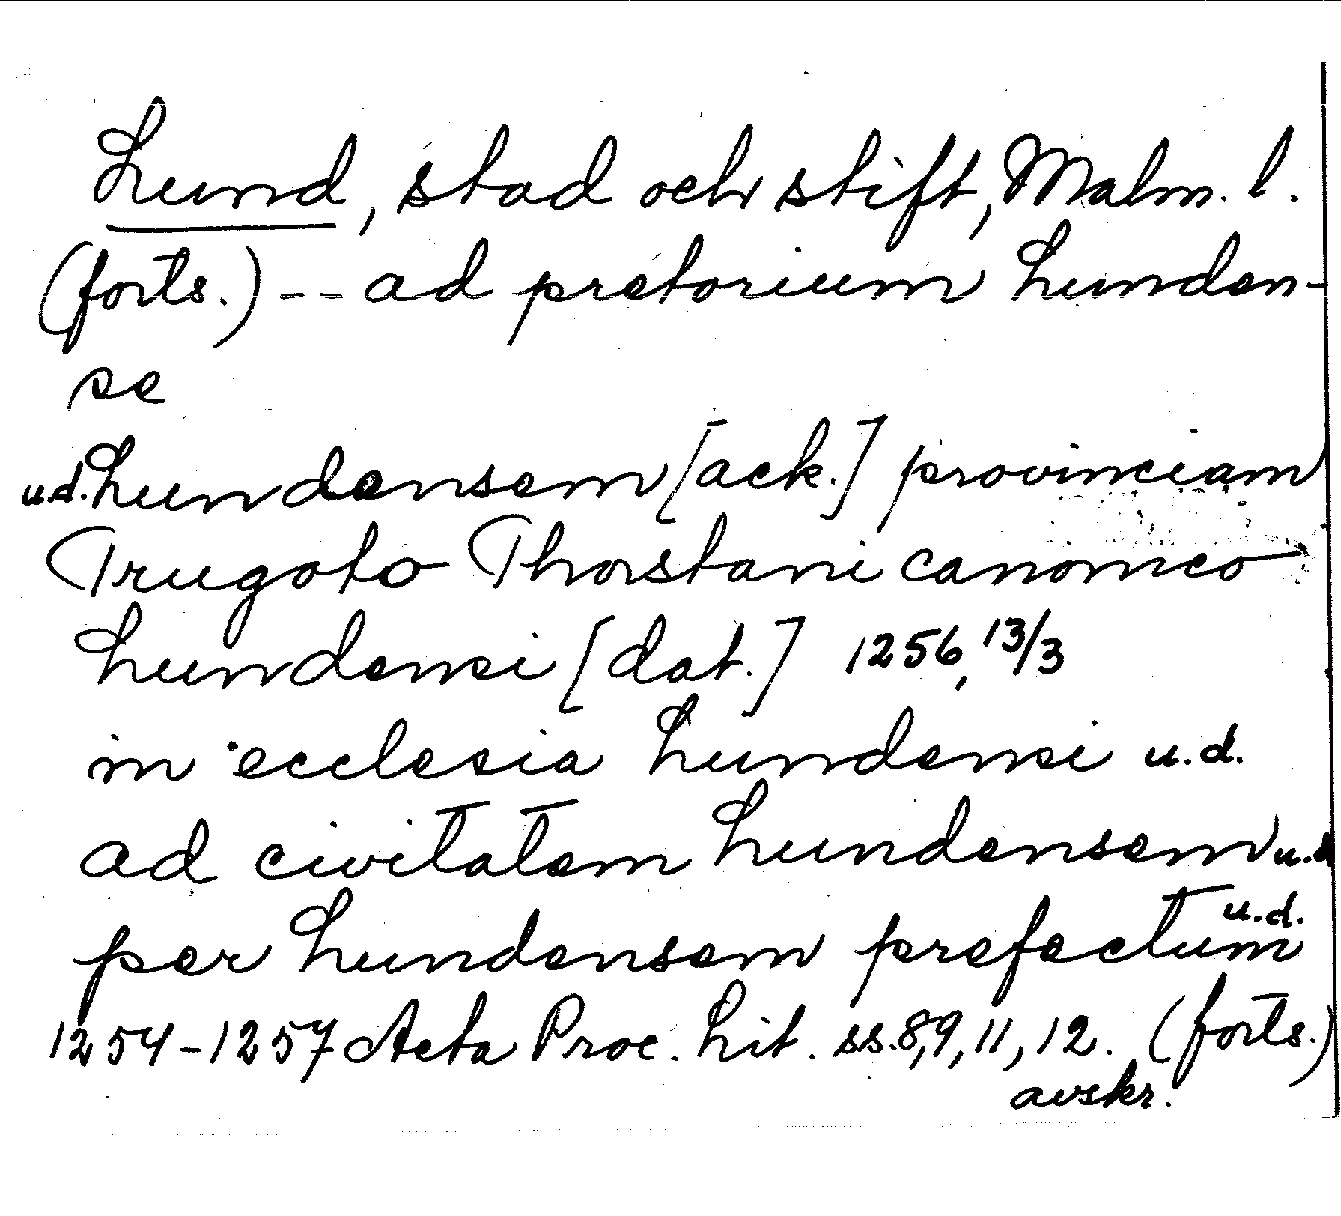 Lund, stad och stift, Malm. l.
(forts.) -- ad pretorium Lunden-
se
u.d. Lundensem [ack.] provinciam
Trugoto Thorstani canonico
Lundensi [dat.] 1256, 13/3
in ecclesia Lundensi u.d.
ad civitatem Lundensem u.d.
per Lundensem prefectum u.d.
1254-1257 Acta Proc. Lit. ss. 8, 9, 11, 12. (forts.)
avskr.